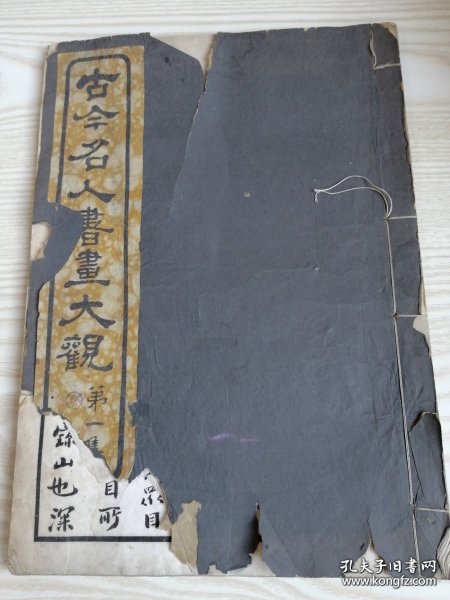 古今名人書畫大觀
第一集
目所
目
山也深
孔夫子旧书网
www.kongfz.com